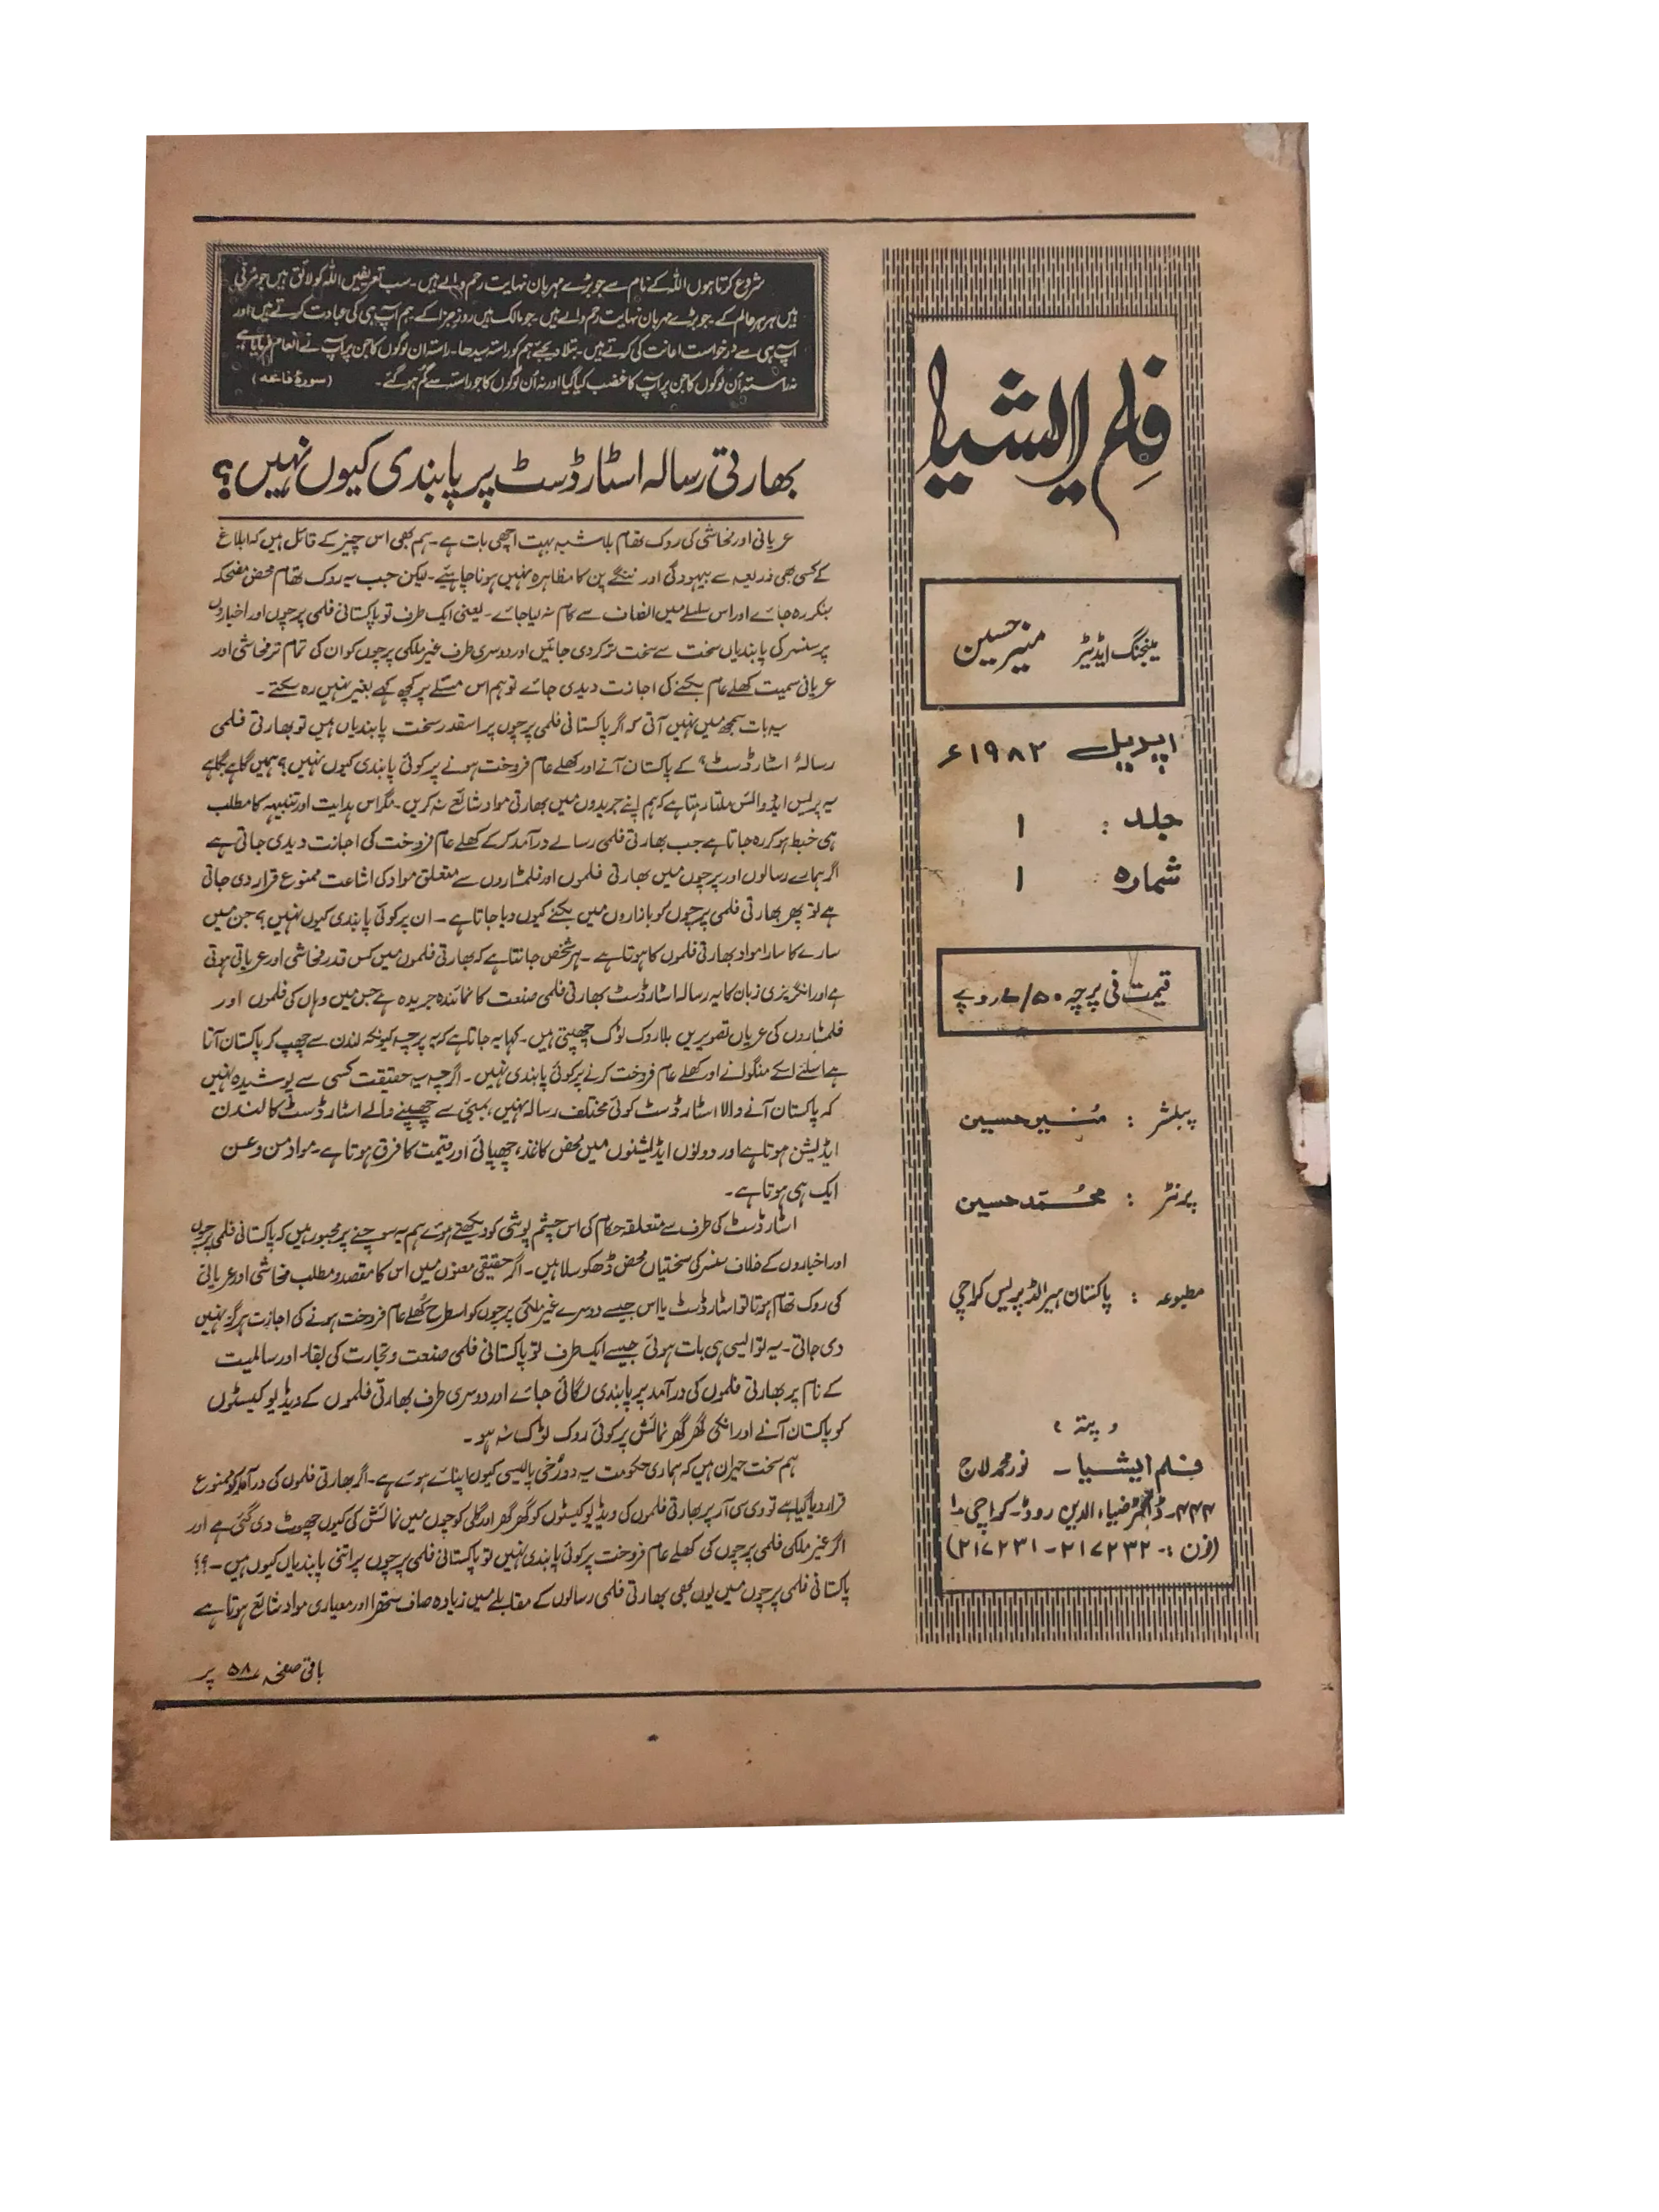 فلم ایشیا
مینجنگ ایڈیٹر منیر حسین
اپریل ۱۹۸۲ء
جلد : ۱
شمارہ : ۱
قیمت فی پرچہ ۷/۵۰ روپے
پبلشر : مُنیر حسین
پرنٹر : محمّد حسین
مطبوعہ : پاکستان ہیرالڈ پریس کراچی
، پتہ ،
فلم ایشیا ۔ نور محمد لاج
۴۴۴۔ ڈاکٹر ضیاء الدین روڈ۔ کراچی ۱۰
(فون :۔ ۲۱۷۲۳۲ ۔ ۲۱۷۲۳۱)
شروع کرتا ہوں اللہ کے نام سے جو بڑے مہربان نہایت رحم والے ہیں۔ سب تعریفیں اللہ کو لائق ہیں جو مُربّی
ہیں ہر ہر عالم کے۔ جو بڑے مہربان نہایت رحم والے ہیں۔ جو مالک ہیں روزِ جزا کے۔ ہم آپ ہی کی عبادت کرتے ہیں اور
آپ ہی سے درخواست اعانت کی کرتے ہیں۔ بتلا دیجئے ہم کو راستہ سیدھا۔ راستہ ان لوگوں کا جن پر آپ نے انعام فرمایا ہے
نہ راستہ اُن لوگوں کا جن پر آپ کا غضب کیا گیا اور نہ اُن لوگوں کا جو راستہ سے گم ہو گئے۔ (سورۂ فاتحہ)
بھارتی رسالہ اسٹارڈسٹ پر پابندی کیوں نہیں؟
عریانی اور فحاشی کی روک تھام بلاشبہ بہت اچھی بات ہے۔ ہم بھی اس چیز کے قائل ہیں کہ ابلاغ
کے کسی بھی ذریعہ سے بیہودگی اور ننگے پن کا مظاہرہ نہیں ہونا چاہیئے۔ لیکن جب یہ روک تھام محض مضحکہ
بنکر رہ جائے اور اس سلسلے میں انصاف سے کام نہ لیا جائے۔ یعنی ایک طرف تو پاکستانی فلمی پرچوں اور اخباروں
پر سنسر کی پابندیاں سخت سے سخت تر کر دی جائیں اور دوسری طرف غیر ملکی پرچوں کو ان کی تمام تر فحاشی اور
عریانی سمیت کھلے عام بکنے کی اجازت دیدی جائے تو ہم اس مسئلے پر کچھ کہے بغیر نہیں رہ سکتے۔
یہ بات سمجھ میں نہیں آتی کہ اگر پاکستانی فلمی پرچوں پر اسقدر سخت پابندیاں ہیں تو بھارتی فلمی
رسالہ "اسٹارڈسٹ" کے پاکستان آنے اور کھلے عام فروخت ہونے پر کوئی پابندی کیوں نہیں؟ ہمیں گاہے بگاہے
یہ پریس ایڈوائس ملتا رہتا ہے کہ ہم اپنے جریدوں میں بھارتی مواد شائع نہ کریں۔ مگر اس ہدایت اور تنبیہہ کا مطلب
ہی خبط ہو کر رہ جاتا ہے جب بھارتی فلمی رسالے درآمد کر کے کھلے عام فروخت کی اجازت دیدی جاتی ہے
اگر ہمارے رسالوں اور پرچوں میں بھارتی فلموں اور فلمسٹاروں سے متعلق مواد کی اشاعت ممنوع قرار دی جاتی
ہے تو پھر بھارتی فلمی پرچوں کو بازاروں میں بکنے کیوں دیا جاتا ہے۔ ان پر کوئی پابندی کیوں نہیں؟ جن میں
سارے کا سارا مواد بھارتی فلموں کا ہوتا ہے۔ ہر شخص جانتا ہے کہ بھارتی فلموں میں کس قدر فحاشی اور عریانی ہوتی
ہے اور انگریزی زبان کا یہ رسالہ اسٹارڈسٹ بھارتی فلمی صنعت کا نمائندہ جریدہ ہے جس میں وہاں کی فلموں اور
فلمسٹاروں کی عریاں تصویریں بلا روک ٹوک چھپتی ہیں۔ کہا یہ جاتا ہے کہ یہ پرچہ کیونکہ لندن سے چھپ کر پاکستان آتا
ہے اسلئے اسکے منگوانے اور کھلے عام فروخت کرنے پر کوئی پابندی نہیں۔ اگرچہ یہ حقیقت کسی سے پوشیدہ نہیں
کہ پاکستان آنے والا اسٹارڈسٹ کوئی مختلف رسالہ نہیں، بمبئی سے چھپنے والے اسٹارڈسٹ کا لندن
ایڈیشن ہوتا ہے اور دونوں ایڈیشنوں میں محض کاغذ، چھپائی اور قیمت کا فرق ہوتا ہے۔ مواد من و عن
ایک ہی ہوتا ہے۔
اسٹارڈسٹ کی طرف سے متعلقہ حکام کی اس چشم پوشی کو دیکھتے ہوئے ہم یہ سوچنے پر مجبور ہیں کہ پاکستانی فلمی پرچوں
اور اخباروں کے خلاف سنسر کی سختیاں محض ڈھکوسلا ہیں۔ اگر حقیقی معنوں میں اس کا مقصد و مطلب فحاشی اور عریانی
کی روک تھام ہوتا تو اسٹارڈسٹ یا اس جیسے دوسرے غیر ملکی پرچوں کو اسطرح کُھلے عام فروخت ہونے کی اجازت ہرگز نہیں
دی جاتی۔ یہ تو ایسی ہی بات ہوئی جیسے ایک طرف تو پاکستانی فلمی صنعت و تجارت کی بقاء اور سالمیت
کے نام پر بھارتی فلموں کی درآمد پر پابندی لگائی جائے اور دوسری طرف بھارتی فلموں کے ویڈیو کیسٹوں
کو پاکستان آنے اور انکی گھر گھر نمائش پر کوئی روک ٹوک نہ ہو۔
ہم سخت حیران ہیں کہ ہماری حکومت یہ دو رُخی پالیسی کیوں اپنائے ہوئے ہے۔ اگر بھارتی فلموں کی درآمد کو ممنوع
قرار دیا گیا ہے تو وی سی آر پر بھارتی فلموں کی ویڈیو کیسٹوں کو گھر گھر اور گلی کوچوں میں نمائش کی کیوں چھوٹ دی گئی ہے اور
اگر غیر ملکی فلمی پرچوں کی کھلے عام فروخت پر کوئی پابندی نہیں تو پاکستانی فلمی پرچوں پر اتنی پابندیاں کیوں ہیں۔؟؟
پاکستانی فلمی پرچوں میں یوں بھی بھارتی فلمی رسالوں کے مقابلے میں زیادہ صاف ستھرا اور معیاری مواد شائع ہوتا ہے
باقی صفحہ ۵۸ پر